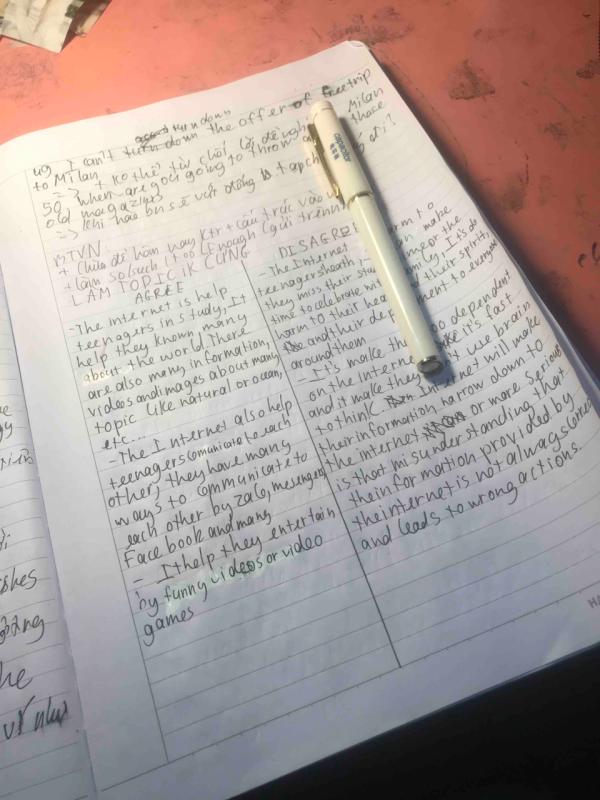 turn down
49, I can't turn down the offer of free trip
to Milan
=> t ko thể từ chối lời đề nghị Milan
50, when are gou going to throw those
old magazines
=> khi nào bn sẽ vứt đống tạp chí đi?
BTVN
+ chủ đề hôm nay ktr + cấu trúc vào vở
+ làm so/such / too / Enough (gửi trên
LAM TOPIC IK CUNG
AGREE
-The internet is help
teenagers in study, It
help they known many
about the world There
are also many information,
videos and images about many
topic like natural or ocean,
etc...
-The Internet also help
teenagers comunicate to each
other, they have many
ways to communicate to
each other by zalo, messenger
Facebook and many
- It help they entertain
by funny videos or video
games
DISAGREE
- The Internet harm to
teenagers heath, can make
they miss their
time to celebrate family, It's do
harm to their and their spirit,
and their to everyone
around them
- It's make they too dependent
on the internet like it's fast
and it make they use brain
to think. Internet will make
their information narrow down to
the internet or more serious
is that misunderstanding that
the information provided by
the internet is not always correct
and leads to wrong actions.